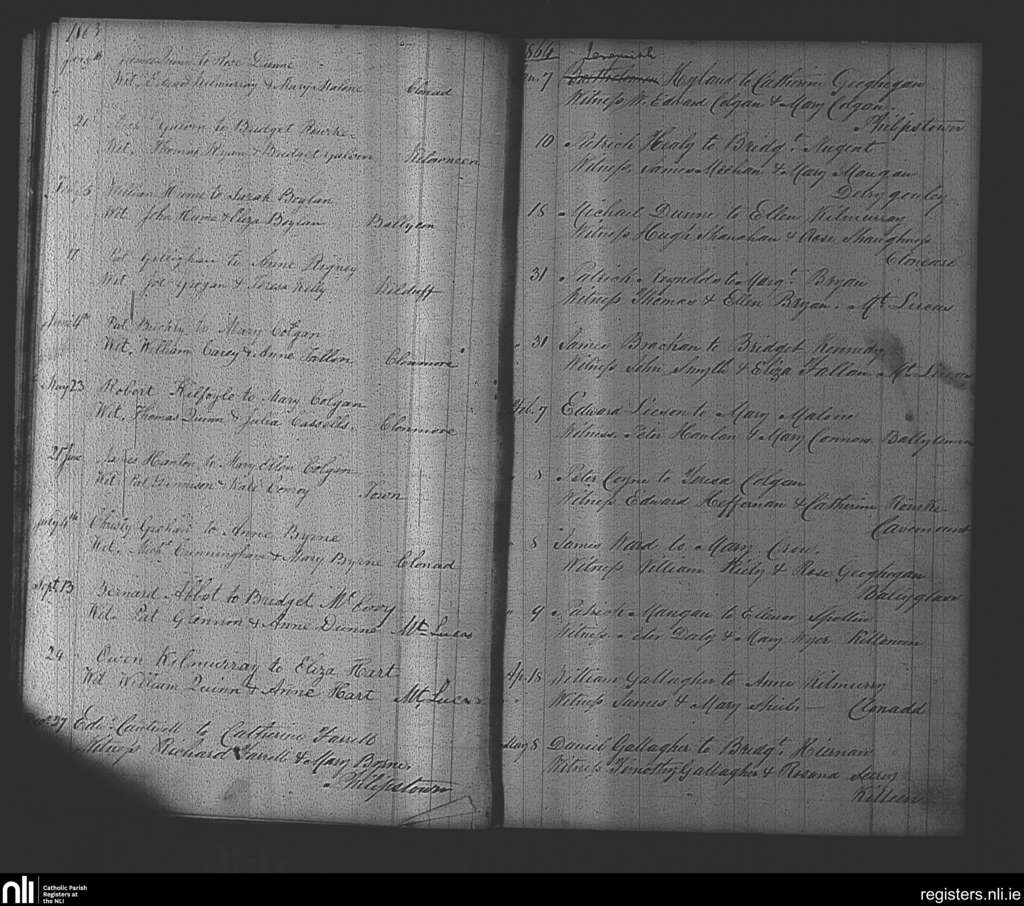 1863
James Quinn to Rose Dunne
Wit. Edward Kilmurray & Mary Malone Clonad
20 Mich. Galvin to Bridget Rourke
Wit. Thomas Flynn & Bridget Galvin
William Hume to Sarah Boylan
Wit. John Hume & Eliza Boylan Ballycon
11 Pat Gilligan to Anne Rigney
Wit. Jos. Grogan & Teresa Kelly Kilduff
4th Pat. Buckly to Mary Colgan
Wit. William Carey & Anne Fallon Clonmore
May 23 Robert Kilfoyle to Mary Colgan
Wit. Thomas Quinn & Julia Cassells. Clonmore
June James Hanlon to Mary Ellen Colgan
Wit. Pat Dennison & Kate Conroy Town
July 4th Christy to Anne Byrne
Wit. Mich. Cunningham & Mary Byrne Clonad
Sept. 13 Bernard Abbot to Bridget McEvoy
Wit. Pat Glennon & Anne Dunne Mt. Lucas
29 Owen Kilmurray to Eliza Hart
Wit. William Quinn & Anne Hart Mt. Lucas
27 Edw. Cantwell to Catherine Farrell
Witness Richard Farrell & Mary Byrne
Philipstown
1864 Jeremiah
Jan. 7 Bartholomew Hyland to Catherine Geoghegan
Witness W. Edward Colgan & Mary Colgan.
Philipstown
10 Patrick Healy to Bridgt. Nugent
Witness James Meehan & Mary Mangan
Derrygouley
18 Michael Dunne to Ellen Kilmurray
Witness Hugh Shanahan & Rose Shaughness
Clonearl
31 Patrick Reynolds to Margt. Bryan
Witness Thomas & Ellen Bryan. Mt. Lucas
" 31 James Brachan to Bridget Kennedy
Witness John Smyth & Eliza Fallon Mt. Lucas
Feb. 7 Edward Leeson to Mary Malone
Witness. Peter Hanlon & Mary Connors.
" 8 Peter Coyne to Teresa Colgan
Witness Edward Heffernan & Catherine Rourke
Cavemount
" 8 James Ward to Mary Crow.
Witness William Kiely & Rose Geoghegan
" 9 Patrick Mangan to Ellenor Spollin
Witness Peter Daly & Mary Wyer Killeenan
Ap. 18 William Gallagher to Anne Kilmurry
Witness James & Mary Shiels Clonadd
May 8 Daniel Gallagher to Bridgt. Kiernan
Witness Timothy Gallagher & Rosana
Killeen
nli
Catholic Parish
Registers at
the NLI
registers.nli.ie